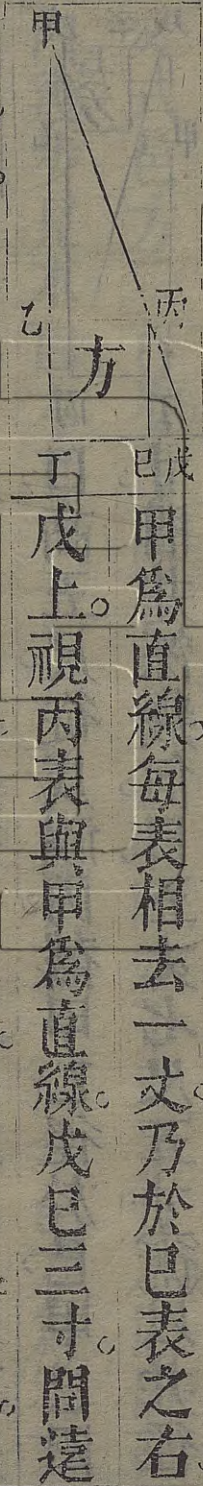 甲
乙
丙
方
丁
己
戊
甲爲直線每表相去一丈乃於己表之右
戊上。視丙表與甲爲直線。戊己三寸。問遠